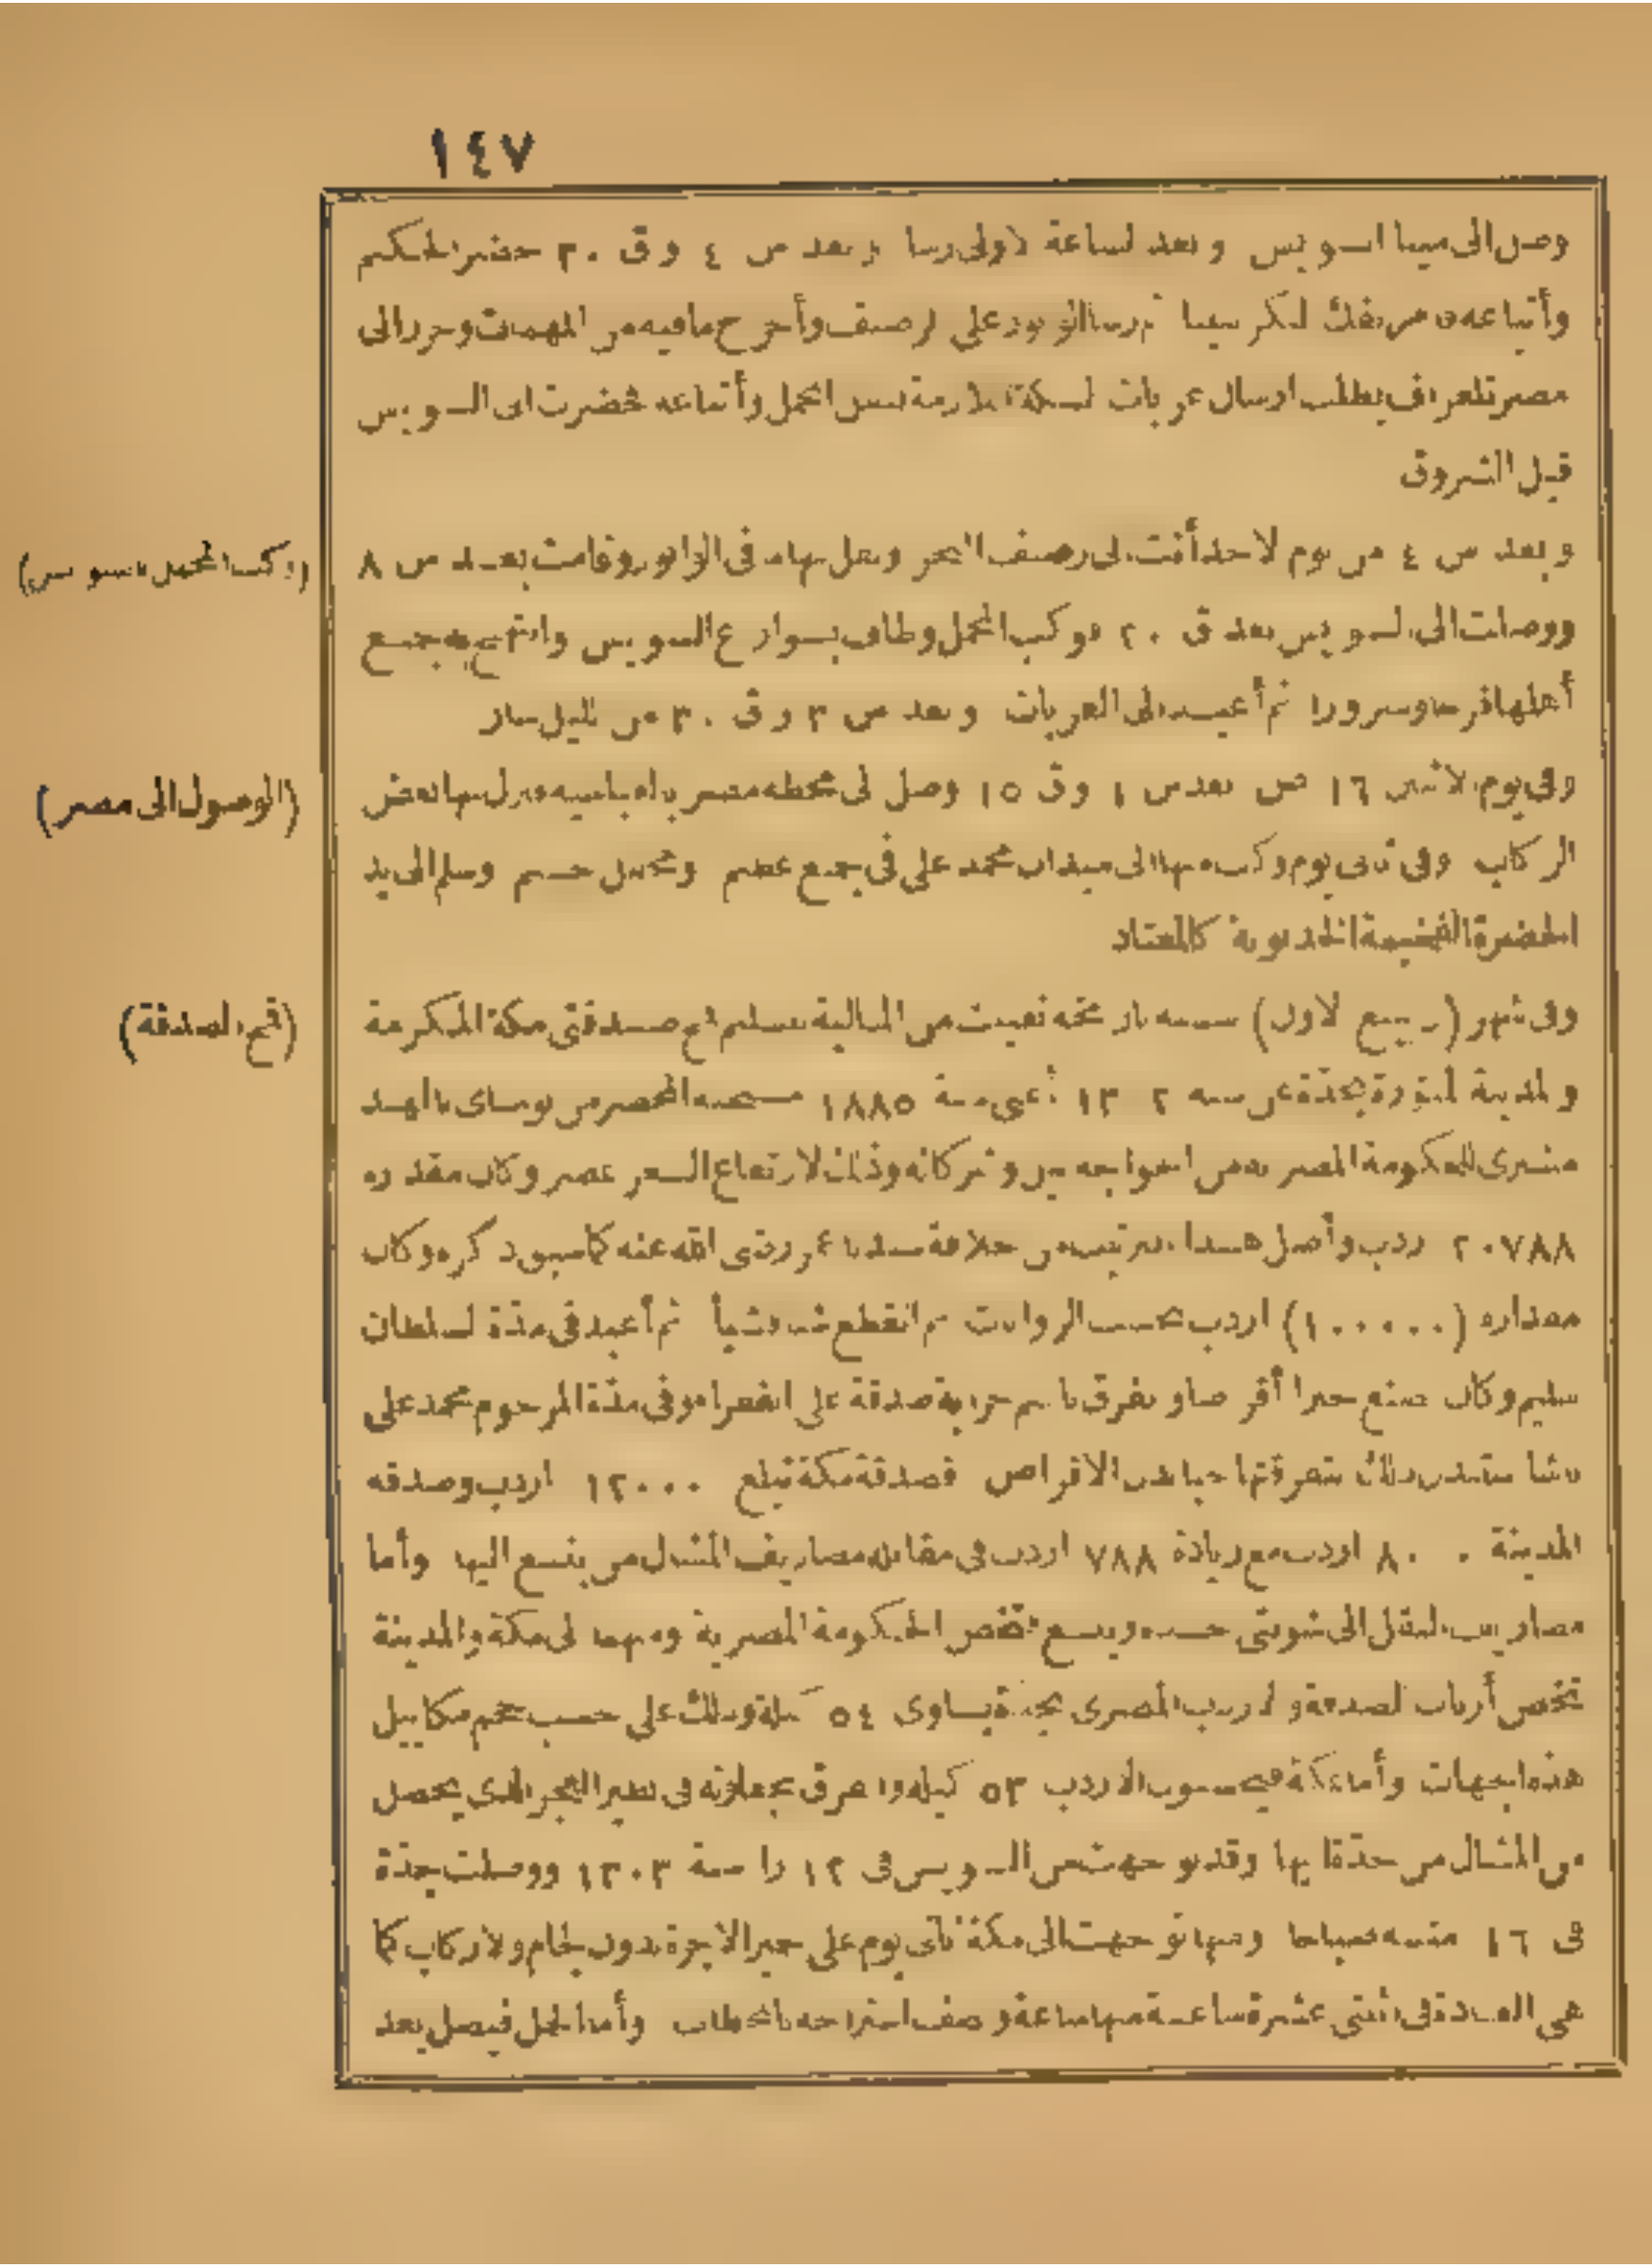 ١٤٧
وصل الى مينا السويس وبعد الساعة الاولى رسا وبعد س ٤ و ق ٣٠ حضر الحكيم
وأتباعه فأمر بفك الكرنتينا ثم رسا الوابور على الرصيف وأخرج ما فيه من المهمات وحرر الى
مصر تلغراف بطلب ارسال عربات السكة اللازمة لنقل المحمل وأتباعه فحضرت الى السويس
قبل الشروق
وبعد س ٤ من يوم الاحد أتت الى رصيف البحر ونقل بها ما فى الوابور وقامت بعد س ٨
ووصلت الى السويس بعد ق ٢٠ فوكب المحمل وطاف بشوارع السويس وابتهج به جميع
أهلها فرحا وسرورا ثم أعيد الى العربات وبعد س ٣ و ق ٣٠ من الليل سار
(وكب المحمل بالسويس)
وفى يوم الاثنين ١٦ ص بعد س ١ و ق ١٥ وصل الى محطة مصر بالعباسيه فنزل بها بعض
الركاب وفى ثانى يوم وكب منها الى ميدان محمد على فى جمع عظيم ومحفل جسيم وسلم الى يد
الحضرة الفخيمة الخديوية كالمعتاد
(الوصول الى مصر)
وفى شهر (ربيع الاول) سنة تاريخه تعينت من المالية لتسليم قمح صدقتى مكة المكرمة
والمدينة المنورة بجدة عن سنة ١٣٠٢ أعنى سنة ١٨٨٥ المحضر من بومباى بالهند
(قمح الصدقة)
مشترى للحكومة المصرية من الخواجه وشركائه وذلك لارتفاع السعر بمصر وكان مقداره
٢٠٧٨٨ اردب وأصل هذا الترتيب من خلافة سيدنا عمر رضى الله عنه كما سبق ذكره وكان
مقداره (١٠٠٠٠٠) اردب بحسب الروايات ثم انقطع شيئا فشيأ ثم أعيد فى مدة السلطان
سليم وكان يصنع خبزا أقراصا ويفرق باسم جراية صدقة على الفقراء وفى مدة المرحوم محمد على
باشا استبدل ذلك بتفرقتها حبا بدل الاقراص فصدقة مكة تبلغ ١٢٠٠٠ اردب وصدقة
المدينة ٨٠٠٠ اردب مع زيادة ٧٨٨ اردب فى مقابلة مصاريف المشال من ينبع اليها وأما
مصاريف النقل الى شونتى جده وينبع فتخص الحكومة المصرية ومنهما الى مكة والمدينة
تخص أرباب الصدقة والاردب المصرى بجدة يساوى ٥٤ كيلة وذلك على حسب حجم مكاييل
هذه الجهات وأما بمكة فيحسبون الاردب ٥٣ كيلة والفرق يجعلونه فى نظير العجز الذى يحصل
من المشال من جدة اليها وقد توجهت من السويس فى ١٢ را سنة ١٣٠٣ ووصلت جدة
فى ١٦ منه صباحا ومنها توجهت الى مكة ثانى يوم على حمير الاجرة بدون لجام ولا ركاب كما
هى العادة فى اثنتى عشرة ساعة منها ساعة ونصف استراحة بالمحطات وأما الجمل فيصل بعد